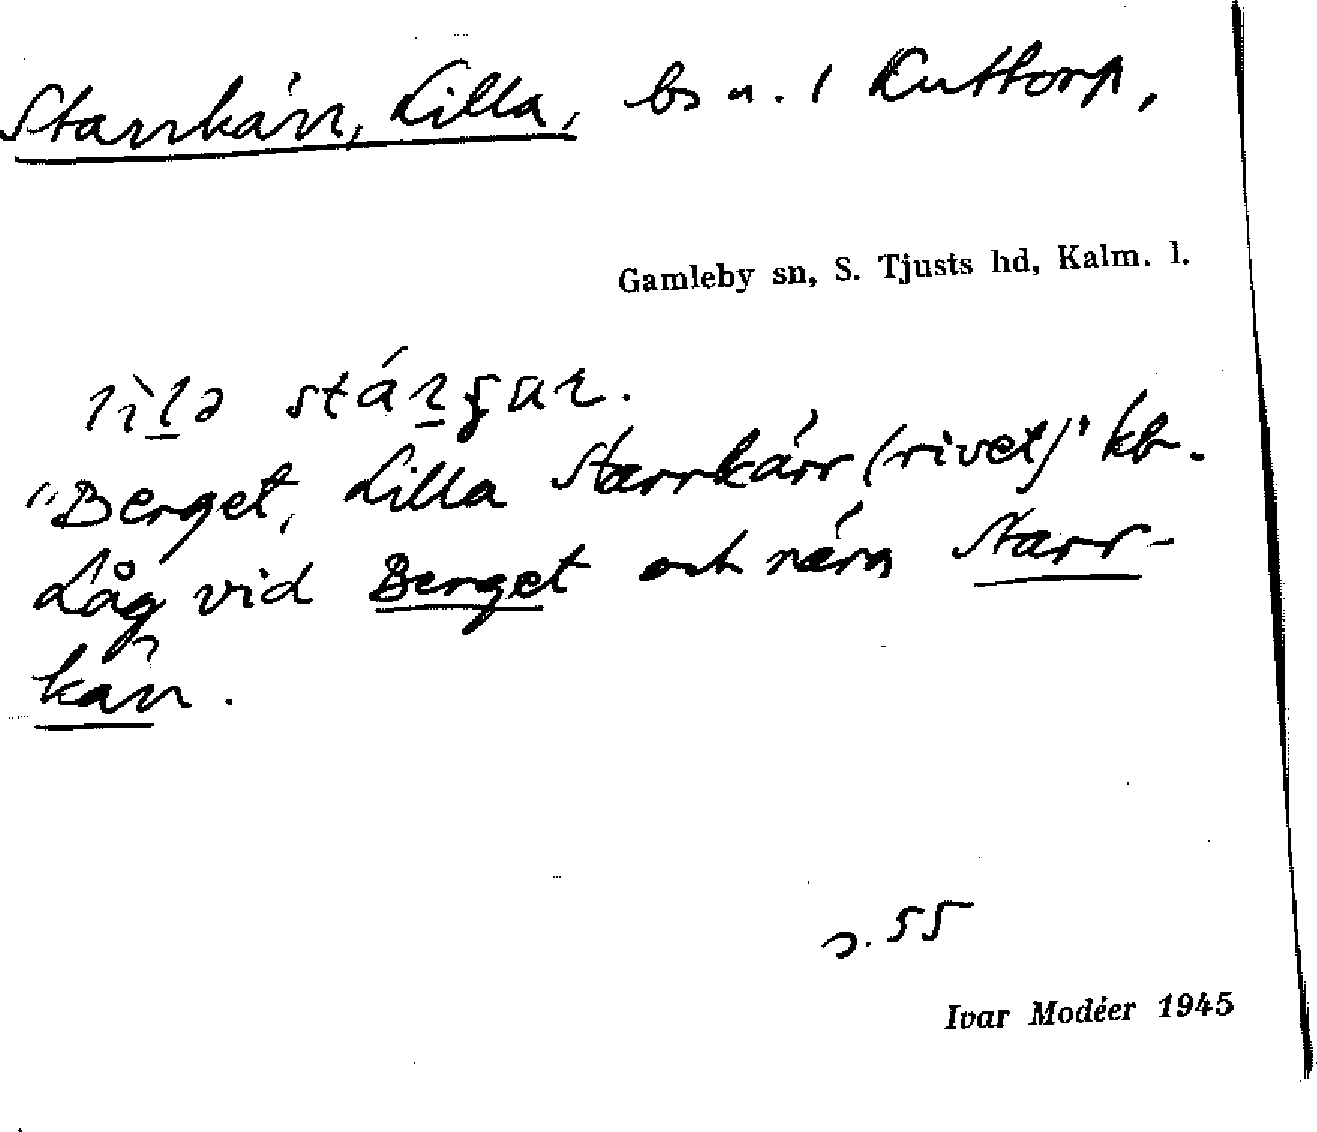 Starrkärr, Lilla, bs u. i Kuttorp,
Gamleby sn, S. Tjusts hd, Kalm. l.
"Berget, Lilla Starrkärr (rivet)" kb.
Låg vid Berget och nära Starr-
kärr.
s. 55
Ivar Modéer 1945